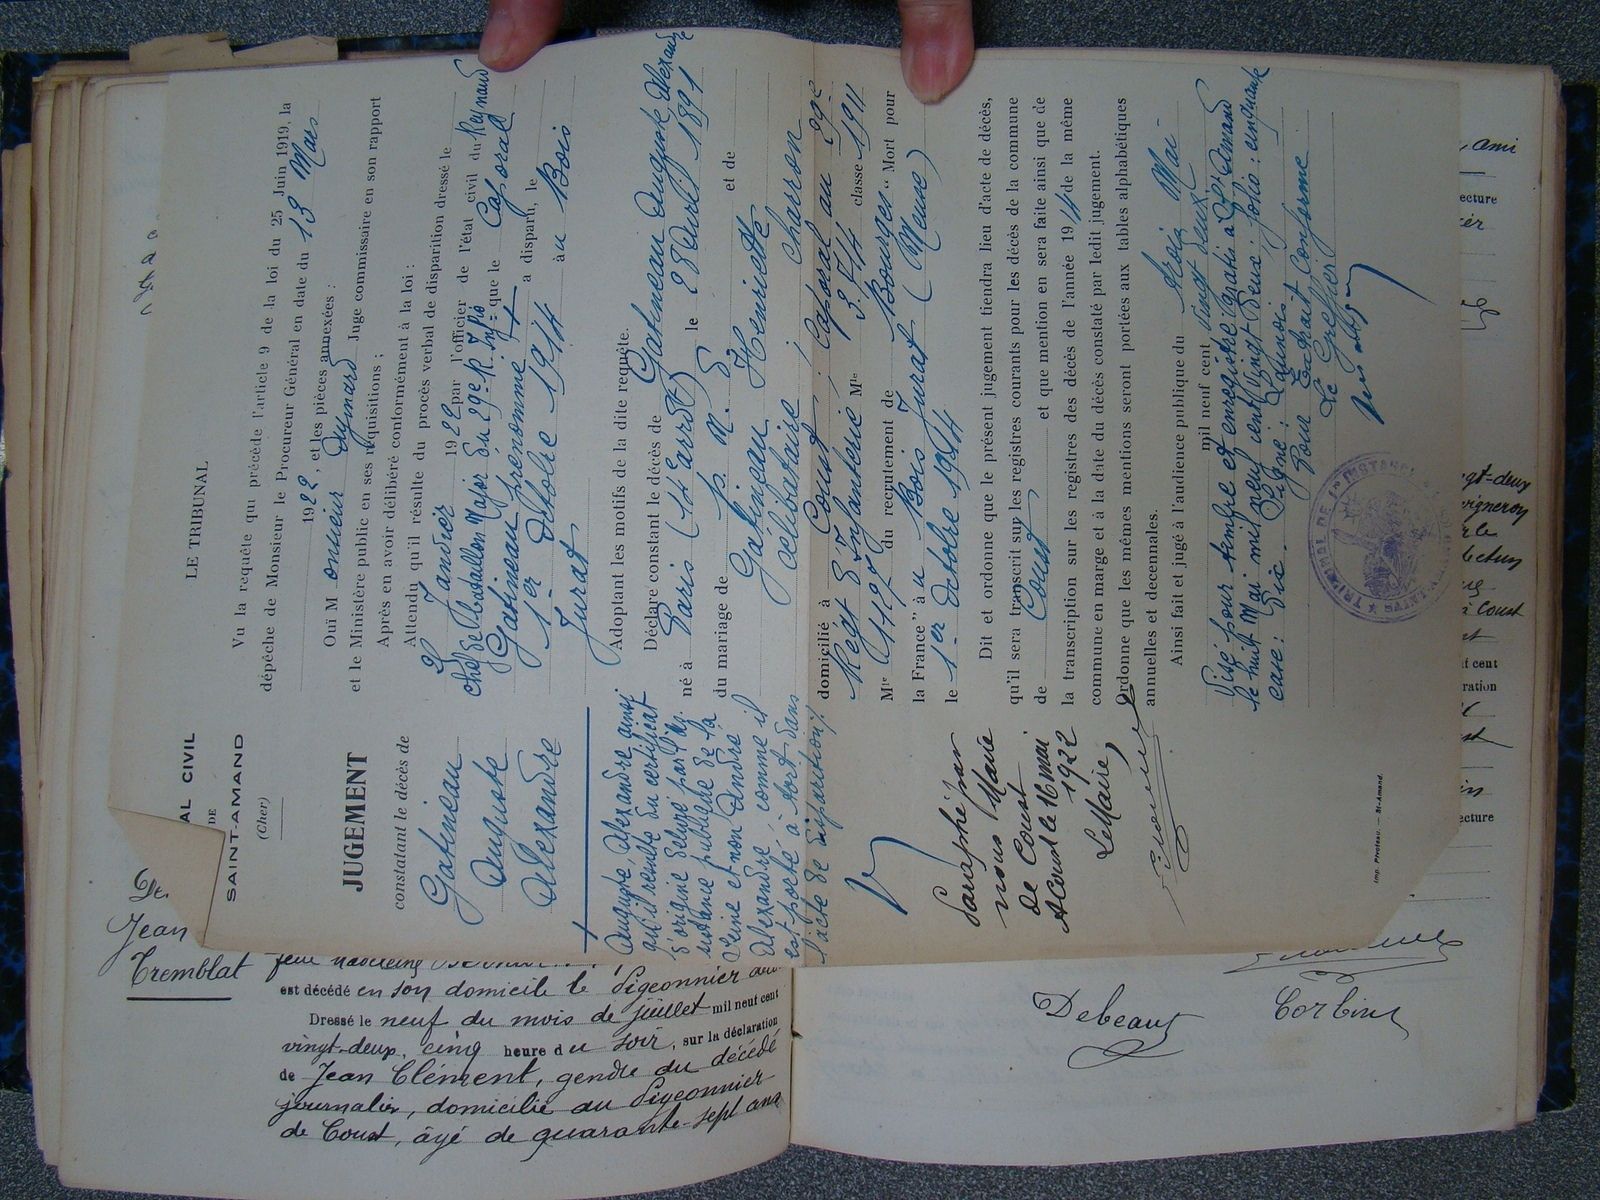 AL CIVIL
DE
SAINT-AMAND
(Cher)
JUGEMENT
constatant le décès de
Gatineau
Auguste
Alexandre
Auguste, Alexandre ainsi
qu'il résulte du certificat
d'origine délivré par
sistance publique de la
Seine et non André
Alexandre, comme il
est porté à tort dans
l'acte de disparition/.
Paraphé par
nous Maire
de Coust
A Coust le 16 mai
1922
Le Maire
Imp. Pivoteau. — St-Amand.
LE TRIBUNAL
Vu la requête qui précède l'article 9 de la loi du 25 Juin 1919, la
dépêche de Monsieur le Procureur Général en date du 13 Mars
1922, et les pièces annexées :
Ouï M onsieur Aymard Juge commissaire en son rapport
et le Ministère public en ses réquisitions ;
Après en avoir délibéré conformément à la loi :
Attendu qu'il résulte du procès verbal de disparition dressé le
2 Janvier 1922 par l'officier de l'état civil du Reynaud
chef de Bataillon Major du 29e R. Infie que le Caporal
Gatineau prénommé + a disparu, le
1er Octobre 1914 au Bois
Jurat
Adoptant les motifs de la dite requête.
Déclare constant le décès de Gatineau Auguste Alexandre
né à Paris (14e arrdt) le 28 Avril 1891
du mariage de p. n. d. et de
Gatineau Henriette
célibataire ; charron
domicilié à Coust ; Caporal au 29e
Regt d'Infanterie Mle 3.744 classe 1911
Mle 1197 du recrutement de Bourges " Mort pour
la France " à u Bois Jurat (Meuse)
le 1er Octobre 1914
Dit et ordonne que le présent jugement tiendra lieu d'acte de décès,
qu'il sera transcrit sur les registres courants pour les décès de la commune
de Coust et que mention en sera faite ainsi que de
la transcription sur les registres des décès de l'année 1914 de la même
commune en marge et à la date du décès constaté par ledit jugement.
Ordonne que les mêmes mentions seront portées aux tables alphabétiques
annuelles et décennales.
Ainsi fait et jugé à l'audience publique du Trois Mai
mil neuf cent vingt deux.
Visé pour timbre et enregistré Gratis à St Amand
le huit Mai mil neuf cent vingt deux : folio : cinquante
case : Dix. Signé : Launois
Pour Extrait Conforme
Le Greffier
TRIBUNAL DE 1re INSTANCE
Jean
Tremblat
est décédé en son domicile le Pigeonnier
Dressé le neuf du mois de juillet mil neuf cent
vingt-deux, cinq heure d u soir, sur la déclaration
de Jean Clément, gendre du décédé
journalier, domicilié au Pigeonnier
de Coust, âgé de quarante-sept ans
Debeaut
Corbin
ami
ecture
gt-deux
vigneron
à Coust
uf cent
ration
ecture